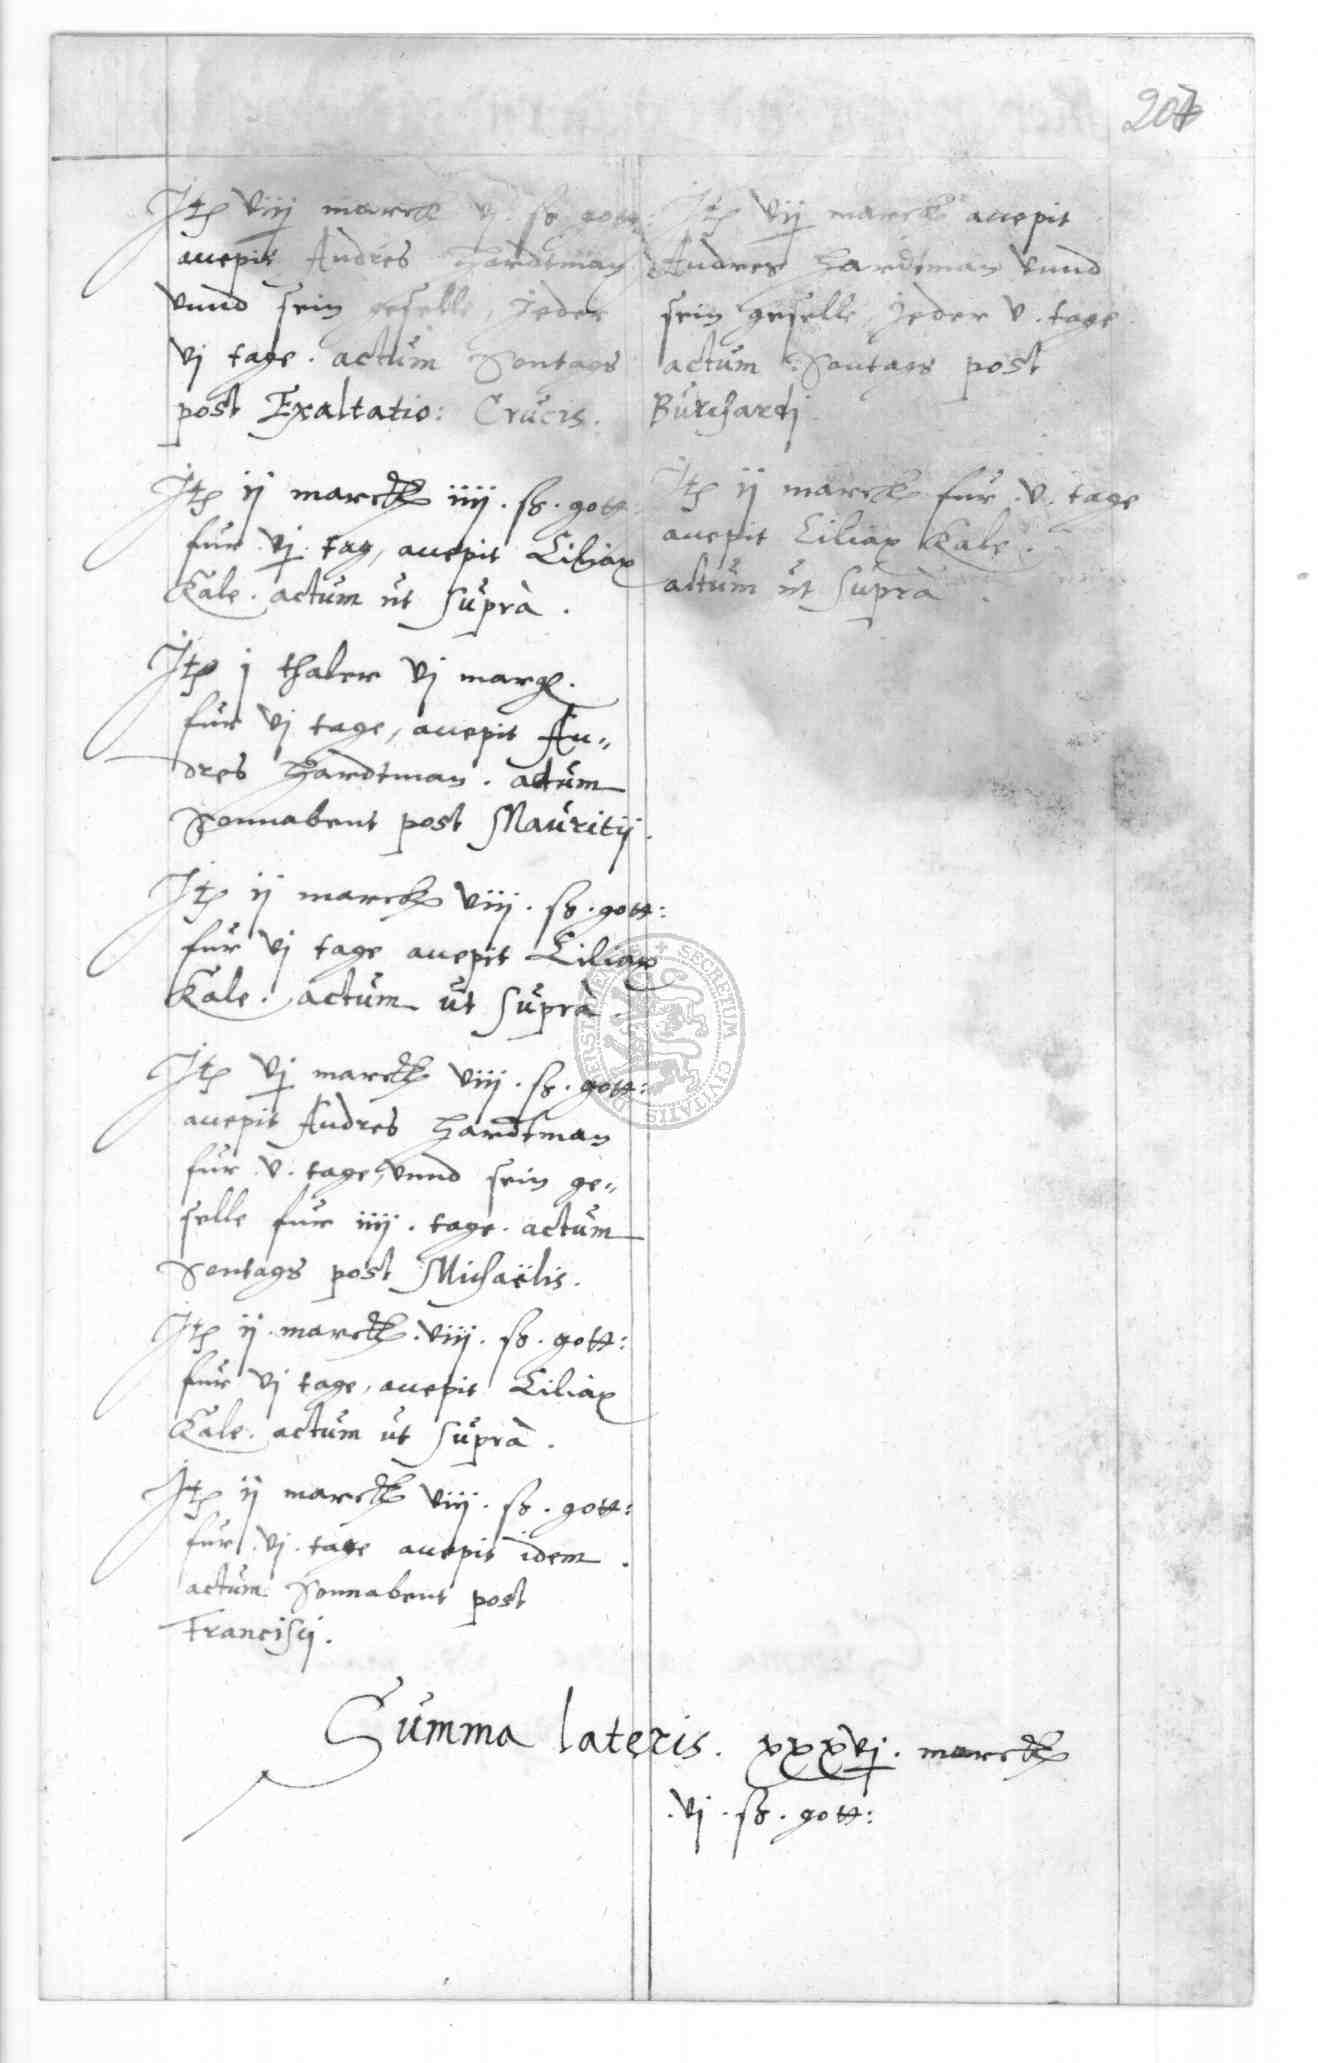 207
Jtē viij marck vj. sh. gott:
accepit Andres Hardtman
vnnd sein geselle, jeder
vj tage. actum Sontags
post Exaltatio: Crucis.
Jtē ij marck iiij. sh. gott:
für vj. tag, accepit Ciliax
Kale. actum ut suprà.
Jtē j thaler vj marg.
für vj tage, accepit An„
dres Hardtman. actum
Sonnabent post Mauritij.
Jtē ij marck viij. sh. gott:
für vj tage accepit Ciliax
Kale. actum ut suprà.
Jtē vj marck viij. sh. gott:
accepit Andres Hardtman
für v. tage, vnnd sein ge„
selle für iiij. tage. actum
Sontags post Michaëlis.
Jtē ij. marck. viij. sh. gott:
für vj tage, accepit Ciliax
Kale. actum ut suprà.
Jtē ij marck viij. sh. gott:
für. vj. tage accepit idem.
actum Sonnabent post
Francisci.
Jtē vij marck accepit
Andres Hardtman vnnd
sein geselle, jeder v. tage
actum Sontags post
Burchardj.
Jtē ij marck für. v. tage
accepit Ciliax Kale.
actum ut suprà.
Summa lateris. xxxvj. marck
.vj. sh. gott:
SECRETUM CIVITATIS